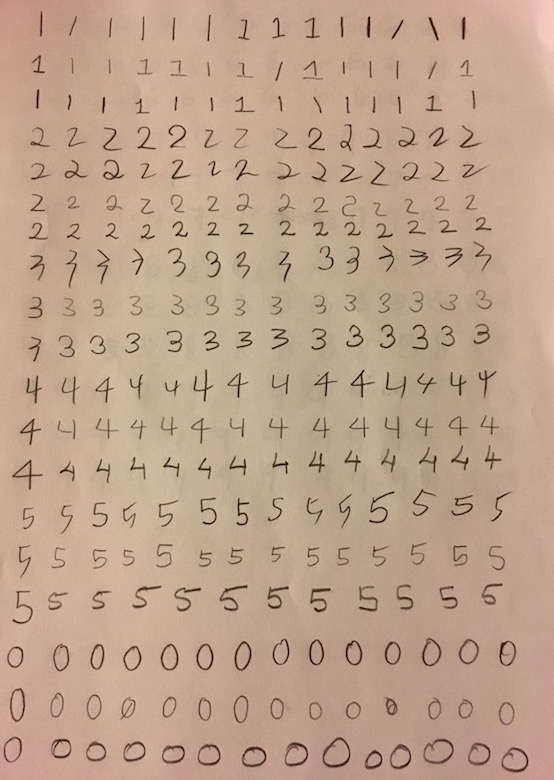 1 1 1 1 1 1 1 1 1 1 1 1 1 1
1 1 1 1 1 1 1 1 1 1 1 1 1 1
1 1 1 1 1 1 1 1 1 1 1 1 1 1
2 2 2 2 2 2 2 2 2 2 2 2 2 2
2 2 2 2 2 2 2 2 2 2 2 2 2 2
2 2 2 2 2 2 2 2 2 2 2 2 2 2
2 2 2 2 2 2 2 2 2 2 2 2 2 2
3 3 3 3 3 3 3 3 3 3 3 3 3 3
3 3 3 3 3 3 3 3 3 3 3 3 3 3
3 3 3 3 3 3 3 3 3 3 3 3 3 3
4 4 4 4 4 4 4 4 4 4 4 4 4 4
4 4 4 4 4 4 4 4 4 4 4 4 4 4
4 4 4 4 4 4 4 4 4 4 4 4 4 4
5 5 5 5 5 5 5 5 5 5 5 5 5 5
5 5 5 5 5 5 5 5 5 5 5 5 5 5
5 5 5 5 5 5 5 5 5 5 5 5
0 0 0 0 0 0 0 0 0 0 0 0 0 0
0 0 0 0 0 0 0 0 0 0 0 0 0 0
0 0 0 0 0 0 0 0 0 0 0 0 0 0